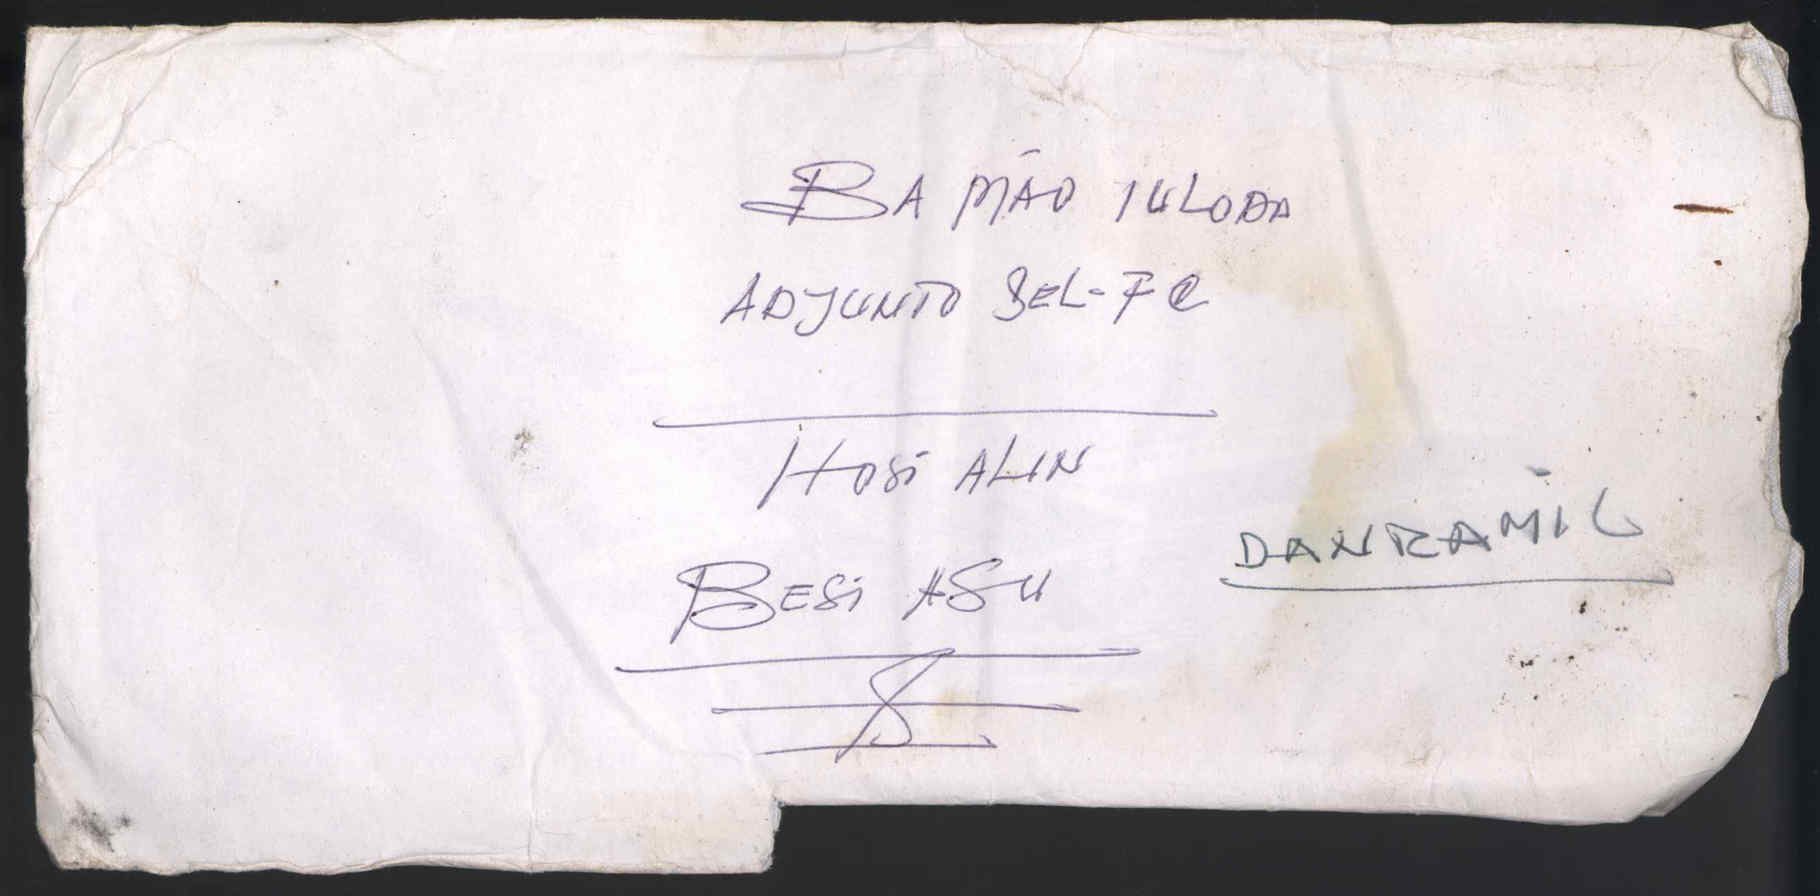 BA MÃO IULODA
ADJUNTO SEL-FC
HOSI ALIN
BESI ASU
DANRAMIL